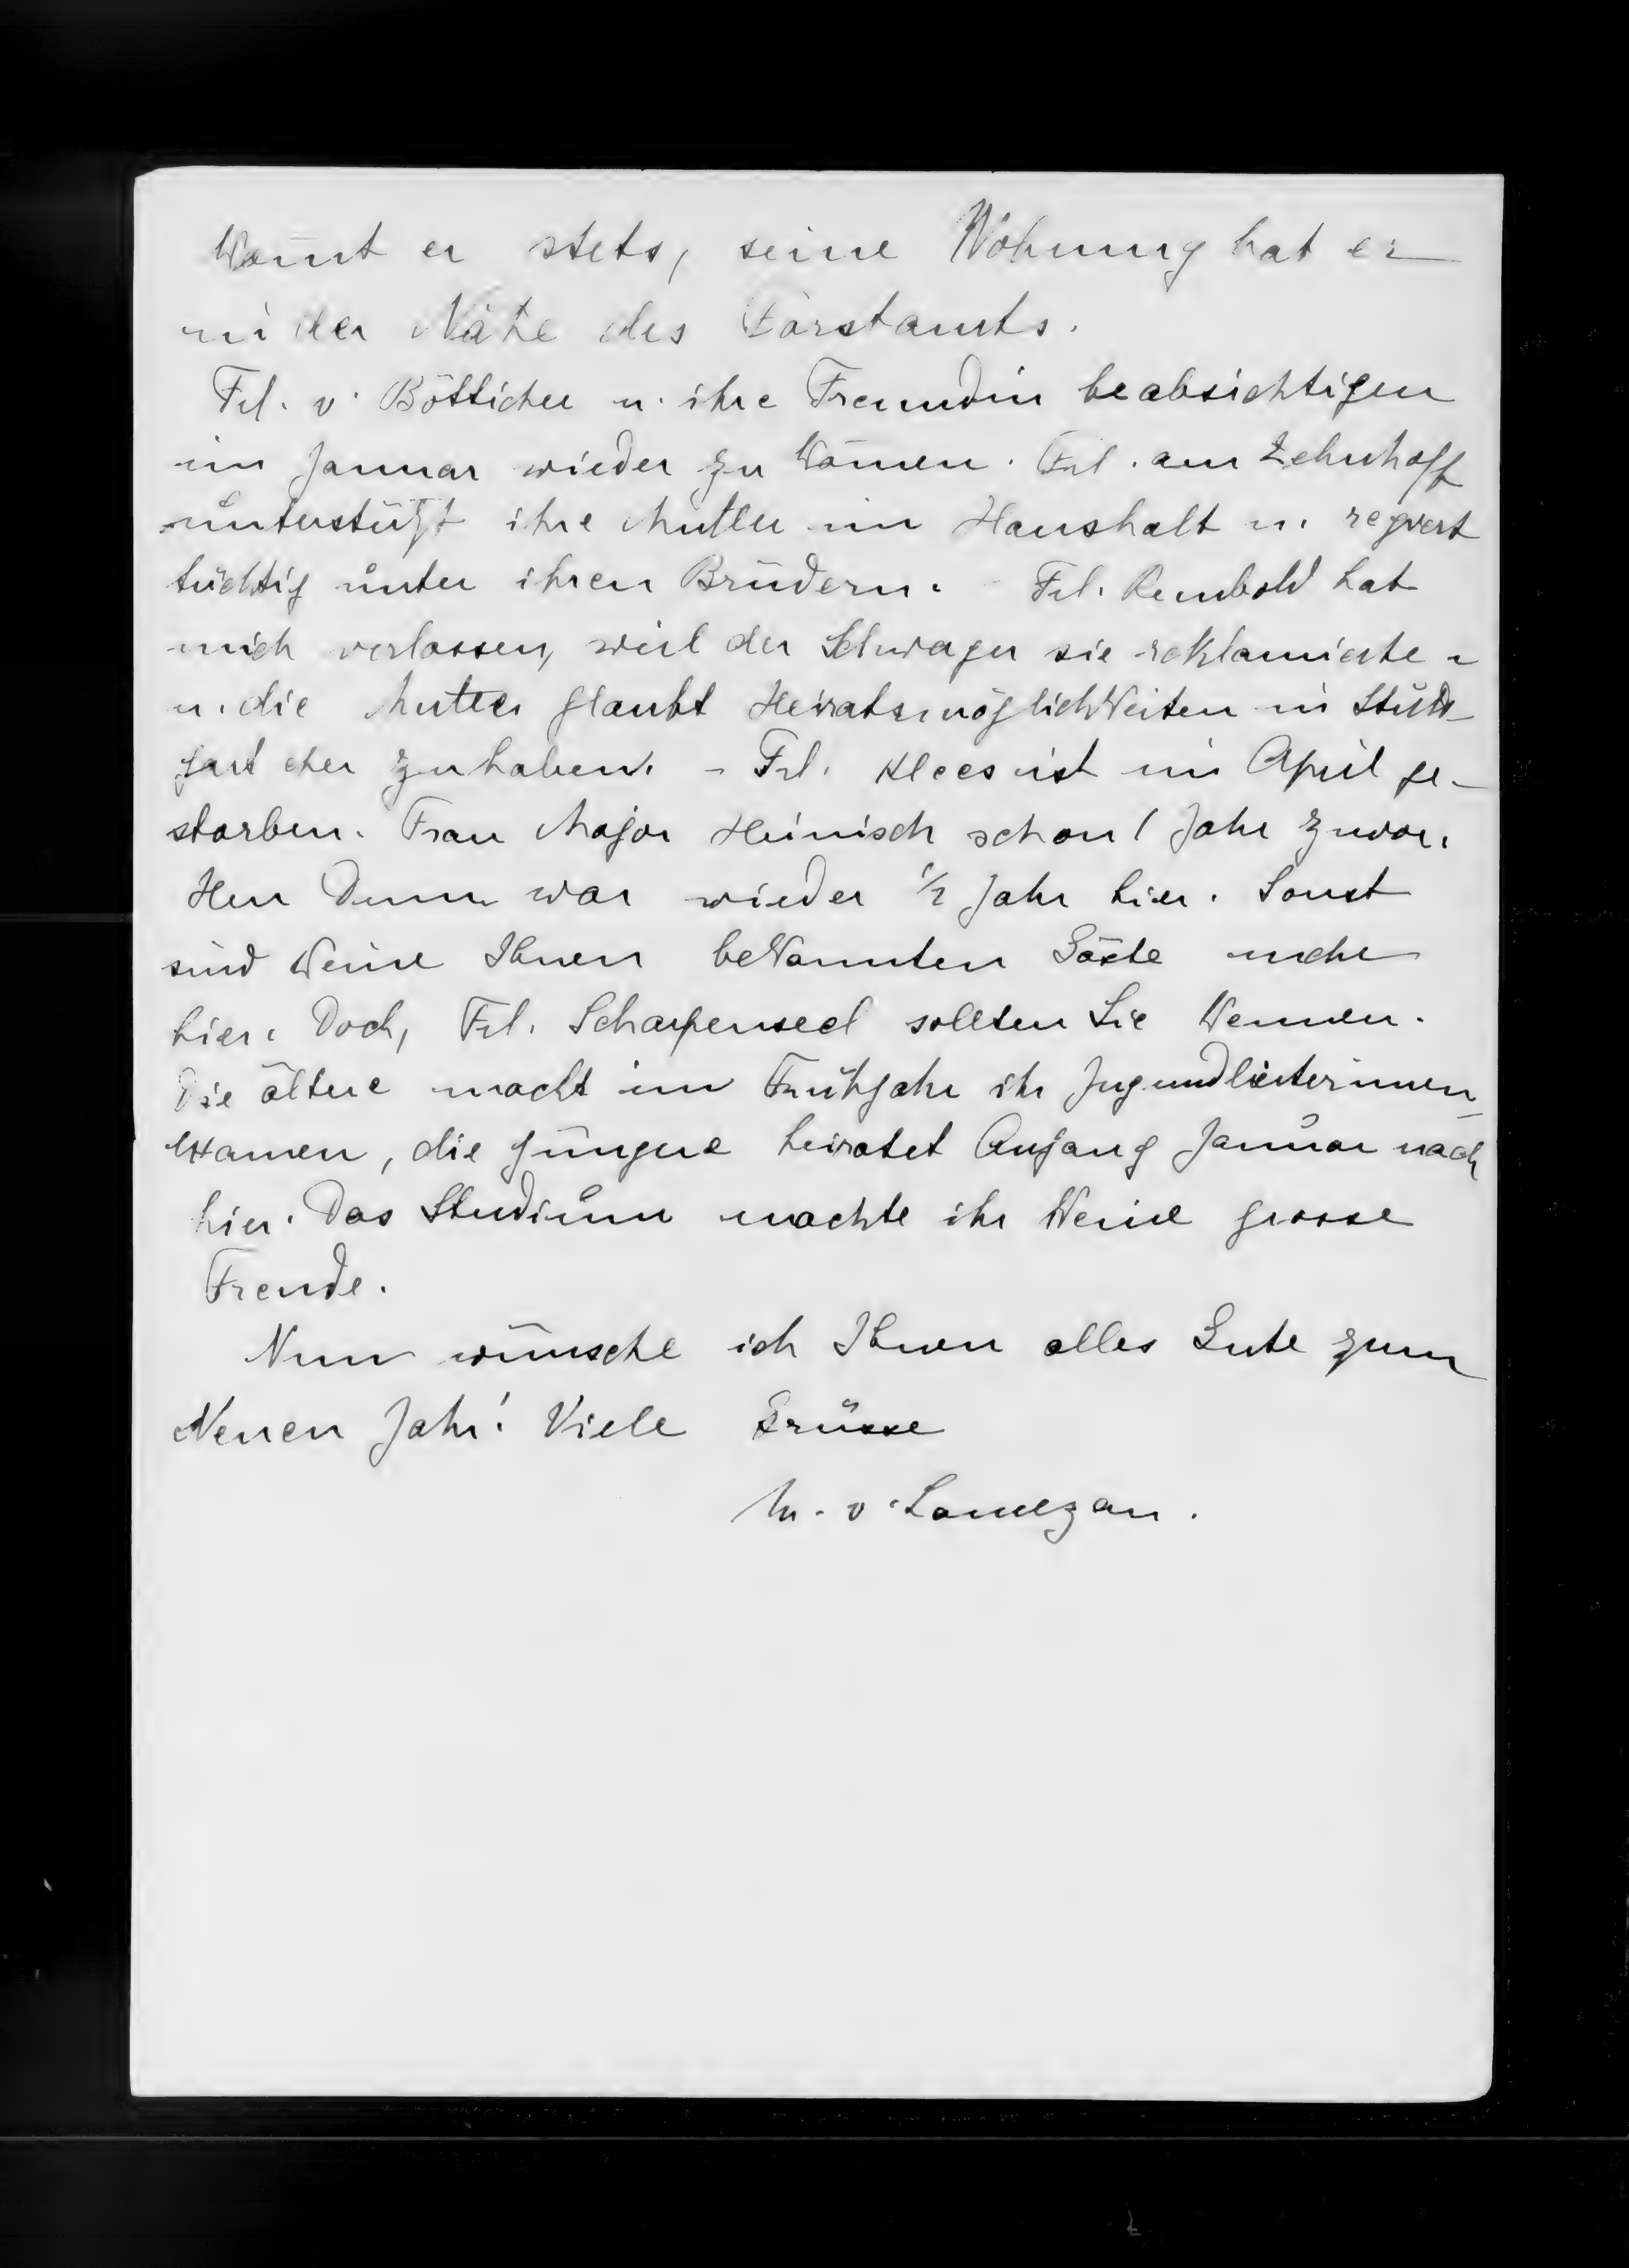 kommt er stets, seine Wohnung hat er
in der Nähe des Forstamts.
Frl. v. Bötticher u. ihre Freundin beabsichtigen
im Januar wieder zu kommen. Frl. am Zehnhoff
unterstützt ihre Mutter im Haushalt u. regiert
tüchtig unter ihren Brüdern. - Frl. Rembold hat
mich verlassen, weil der Schwager sie reklamierte
u. die Mutter glaubt Heiratsmöglichkeiten in Stutt-
gart eher zu haben. - Frl. Klees ist im April ge-
storben. Frau Major Heinisch schon 1 Jahr zuvor.
Herr war wieder 1/2 Jahr hier. Sonst
sind keine Ihnen bekannten Gäste mehr
hier. Doch, Frl. Scharpenseel sollten Sie kennen.
Die ältere macht im Frühjahr ihr Jugendleiterinnen-
examen, die jüngere heiratet Anfang Januar nach
hier. Das Studium machte ihr keine grosse
Freude.
Nun wünsche ich Ihnen alles Gute zum
Neuen Jahr! Viele Grüsse
M. v. Lamezan.